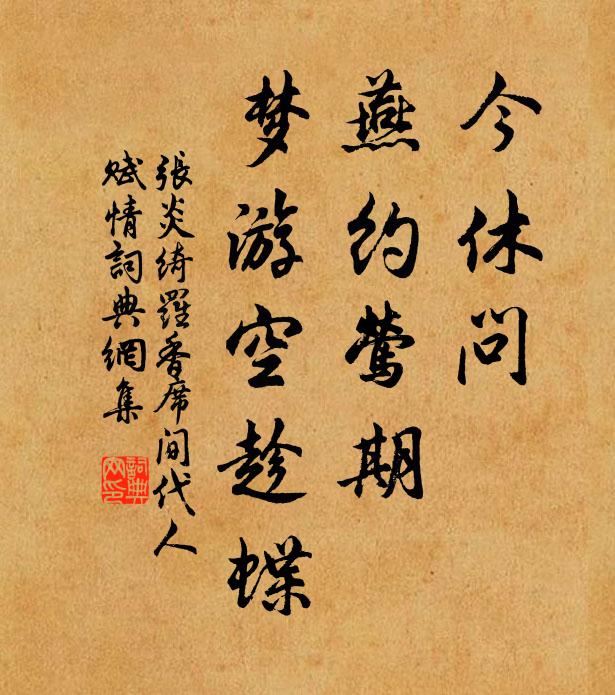 今休问
燕约莺期
梦游空趁蝶
張炎绮羅香席间代人
赋情詞典網集
詞典网印